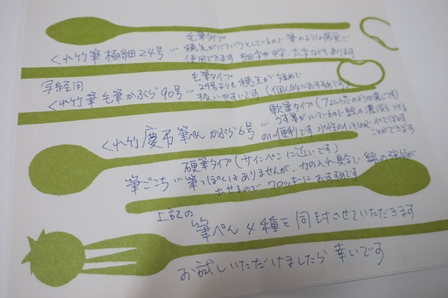 毛筆タイプ
くれ竹筆極細24号… 穂先がバラバラとしているので 筆のような感覚で
使用できます 細字 中字 太字などもあります
写経用
毛筆タイプ
くれ竹筆 毛筆かぶら90号… 24号よりも 穂先が
扱いやすいです(個人的におすすめです)
軟筆タイプ
くれ竹慶弔筆ぺん かぶら6号… うす墨がついているので
のに便利です
ことができます
硬筆タイプ(サインペンに近いです)
筆ごこち… 筆っぽくはありませんが、力の入れ具合で 線の強弱が
おすすめです
上記の
筆ぺん4種を同封させていただきます
お試しいただけましたら幸いです